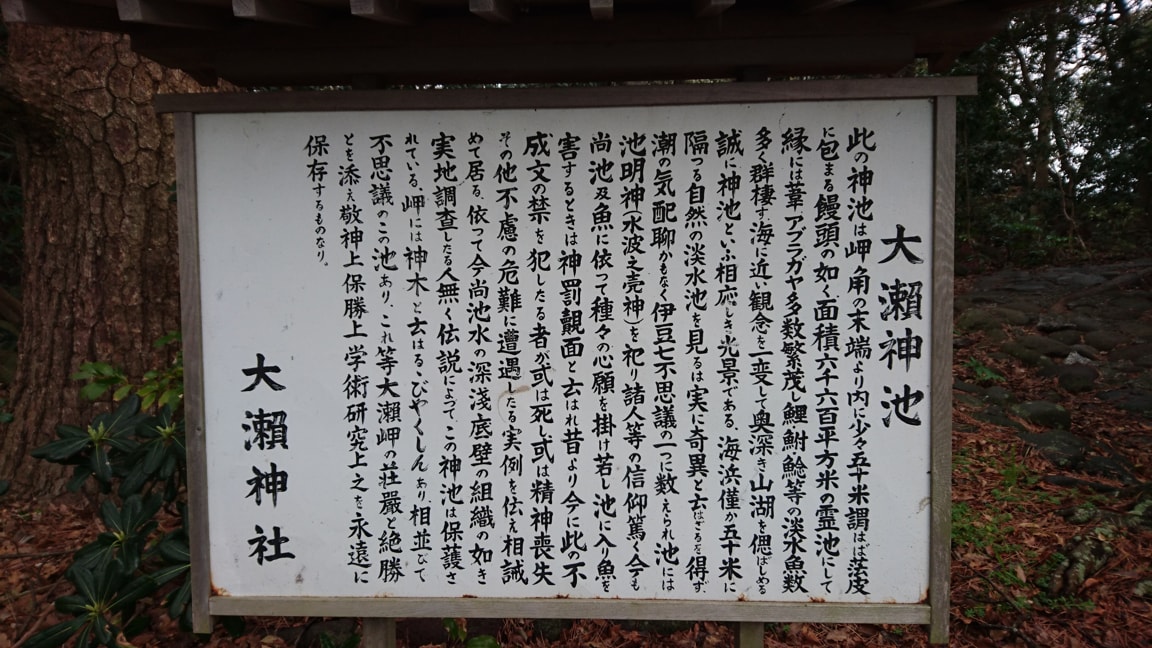 大瀬神池
此の神池は岬角の末端より内に少々五十米謂はば薄皮
に包まる饅頭の如く面積六千六百平方米の霊池にして
縁には葦、アブラガヤ多数繁茂し鯉鮒鯰等の淡水魚数
多く群棲す、海に近い観念を一変して奥深き山湖を偲ばしめる
誠に神池といふ相応しき光景である、海浜僅か五十米に
隔つる自然の淡水池を見るは実に奇異と云はざるを得ず、
潮の気配聊かもなく伊豆七不思議の一つに数えられ池には
池明神(水波之売神)を祀り諸人等の信仰篤く今も
尚池及魚に依って種々の心願を掛け若し池に入り魚を
害するときは神罰覿面と云はれ昔より今に此の不
成文の禁を犯したる者が或は死し或は精神喪失
その他不慮の危難に遭遇したる実例を伝え相誡
めて居る、依って今尚池水の深淺底壁の組織の如き
実地調査したる人無く伝説によって、この神池は保護さ
れている、岬には神木と云はるゝびやくしんあり相並びて
不思議のこの池あり、これ等大瀬岬の荘厳と絶勝
とを添え敬神上保勝上学術研究上之を永遠に
保存するものなり。
大瀬神社